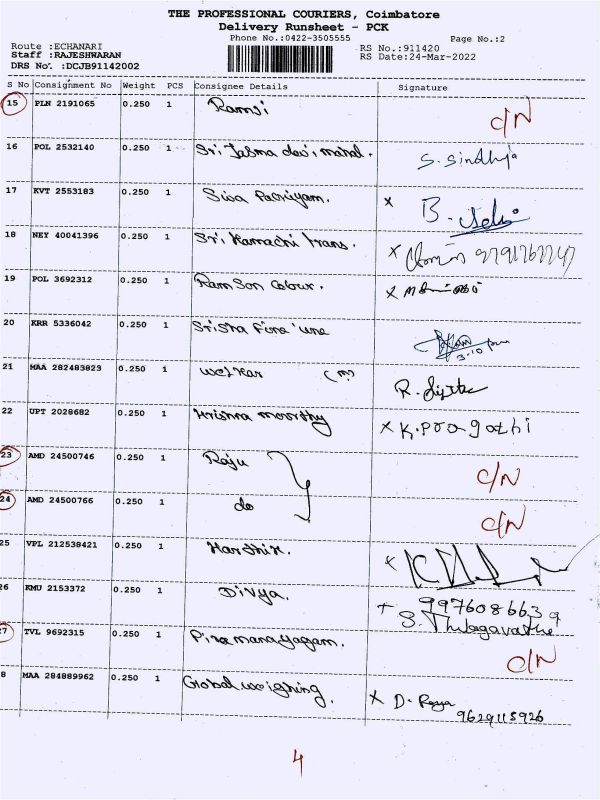 THE PROFESSIONAL COURIERS, Coimbatore
Delivery Runsheet - PCK
Phone No.:0422-3505555 Page No.:2
Route :ECHANARI RS No.:911420
Staff :RAJESHWARAN RS Date:24-Mar-2022
DRS No. :DCJB91142002
S No Consignment No Weight PCS Consignee Details Signature
15 PLN 2191065 0.250 1 Ramsi C/N
16 POL 2532140 0.250 1 Sri Jasma devi mahal. S. Sindhja
17 KVT 2553183 0.250 1 Siva Pacriyam. x B.
18 NEY 40041396 0.250 1 Sri Kamachi trans. x
19 POL 3692312 0.250 1 Ramson Colour. x
20 KRR 5336042 0.250 1 Srisha Fine
3.10 pm
21 MAA 282483823 0.250 1 R.
22 UPT 2028682 0.250 1 Krishna moorthy x K. pragathi
23 AMD 24500746 0.250 1 Raju C/N
24 AMD 24500766 0.250 1 do C/N
25 VPL 212538421 0.250 1 Karthik. x
26 KMU 2153372 0.250 1 Divya. + 9976086639
S. Thilagavathe
27 TVL 9692315 0.250 1 Piramanayagam. C/N
8 MAA 284889962 0.250 1 Global weighing. x D. Raya
9629115926
4